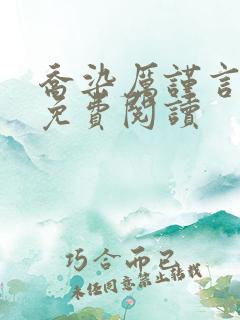 喬染厲謹言
免費閱讀
巧合而已
未任同意禁止轉載